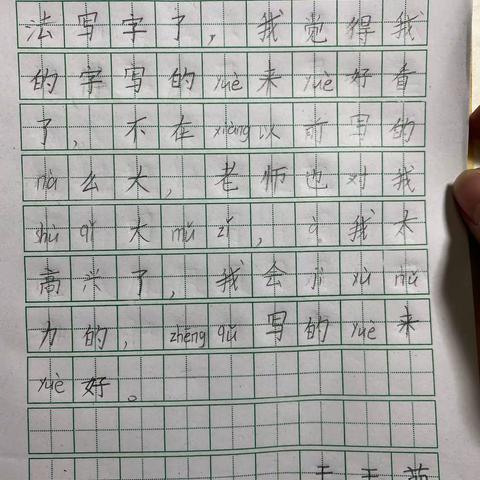 法写字了，我觉得我
的字写的yuè来yuè好看
了，不在xiàng以前写的
nà么大，老师也对我
shù qǐ大mǔ zǐ，我太
高兴了，我会jì xù nǔ
力的，zhēng qǔ写的yuè来
yuè好。